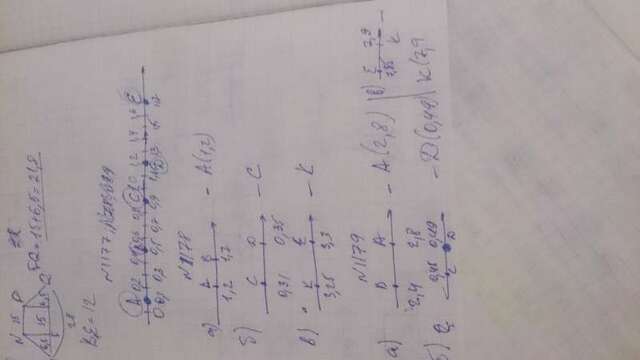 N 15 P
6,5 15 6,5 Q
28
FQ = 15+6,5 = 21,8
KE = 12
N1177,
A 0,2 C 1,2 1,4 1,6 E
0 0,1 0,3 0,5 0,7 0,9 D 1,3 1,5 1,7
N1178
а) A B - A(1,2)
1,2 1,7
б) C D - C
0,31 0,35
в) K E - K
3,25 3,3
N1179
а) B A - A(2,8)
2,4 2,8
в) E 7,9 -
7,85 K
K(7,9
б) 0,45 0,49 - D(0,49)
C D